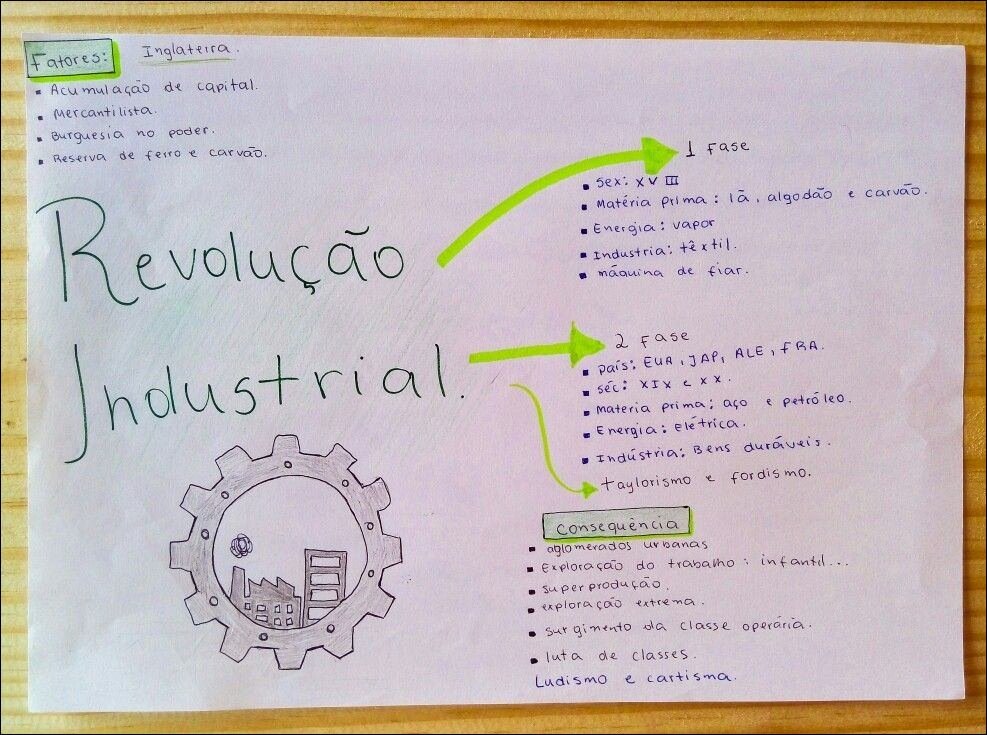 Fatores: Inglaterra.
Acumulação de capital.
Mercantilista.
Burguesia no poder.
Reserva de ferro e carvão.
Revolução
Industrial.
1 Fase
Sex: XVIII
Matéria prima: lã, algodão e carvão.
Energia: vapor
Industria: têxtil.
máquina de fiar.
2 Fase
país: EUA, JAP, ALE, FRA.
séc: XIX e XX.
Materia prima: aço e petróleo.
Energia: Elétrica.
Indústria: Bens duráveis.
taylorismo e fordismo.
Consequência
aglomerados urbanas
Exploração do trabalho: infantil...
superprodução.
exploração extrema.
surgimento da classe operária.
luta de classes.
Ludismo e cartisma.